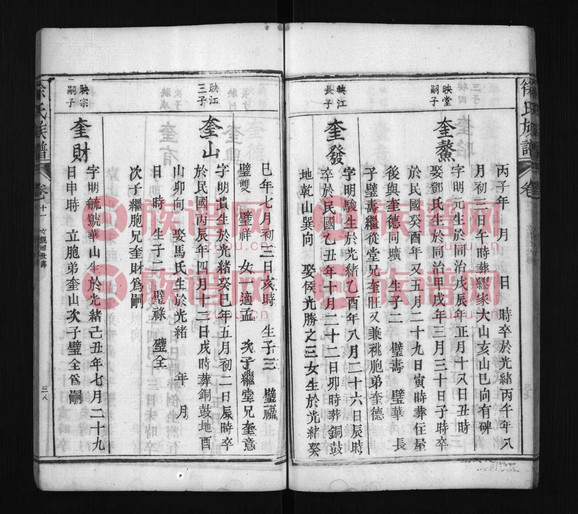 徐氏族譜
丙子年 月 日 時卒於光緒丙午年八
月初三日午時葬繆家大山亥山巳向有碑
映堂嗣子
奎鰲
字明元生於同治戊辰年正月十八日丑時
娶鄧氏生於同治甲戌年三月三十日子時卒
於民國癸酉年又五月二十九日寅時葬住屋
後與奎德同壙 生子二 璧壽 璧華 長
子璧壽繼從堂兄奎財又兼祧胞弟奎德
映江長子
奎發
字明駿生於光緒乙酉年八月二十六日辰時
卒於民國乙丑年十月二十二日卯時葬銅鼓
地乾山巽向 娶侯光勝之三女生於光緒癸
巳年七月初三日亥時 生子三 璧福
璧雙 璧祥 女適孟 次子繼堂兄奎意
映江三子
奎山
字明出生於光緒癸巳年五月初二日辰時卒
於民國丙辰年四月十二日戌時葬銅鼓地酉
山卯向 娶馬氏生於光緒 年 月
日 時 生子二 璧祿 璧全
次子繼胞兄奎財為嗣
映宗嗣子
奎財
字明毓號華山生於光緒己丑年七月二十九
日申時 立胞弟奎山次子璧全為嗣
徐氏族譜
卷十一
三八
族譜网
zupu.cn